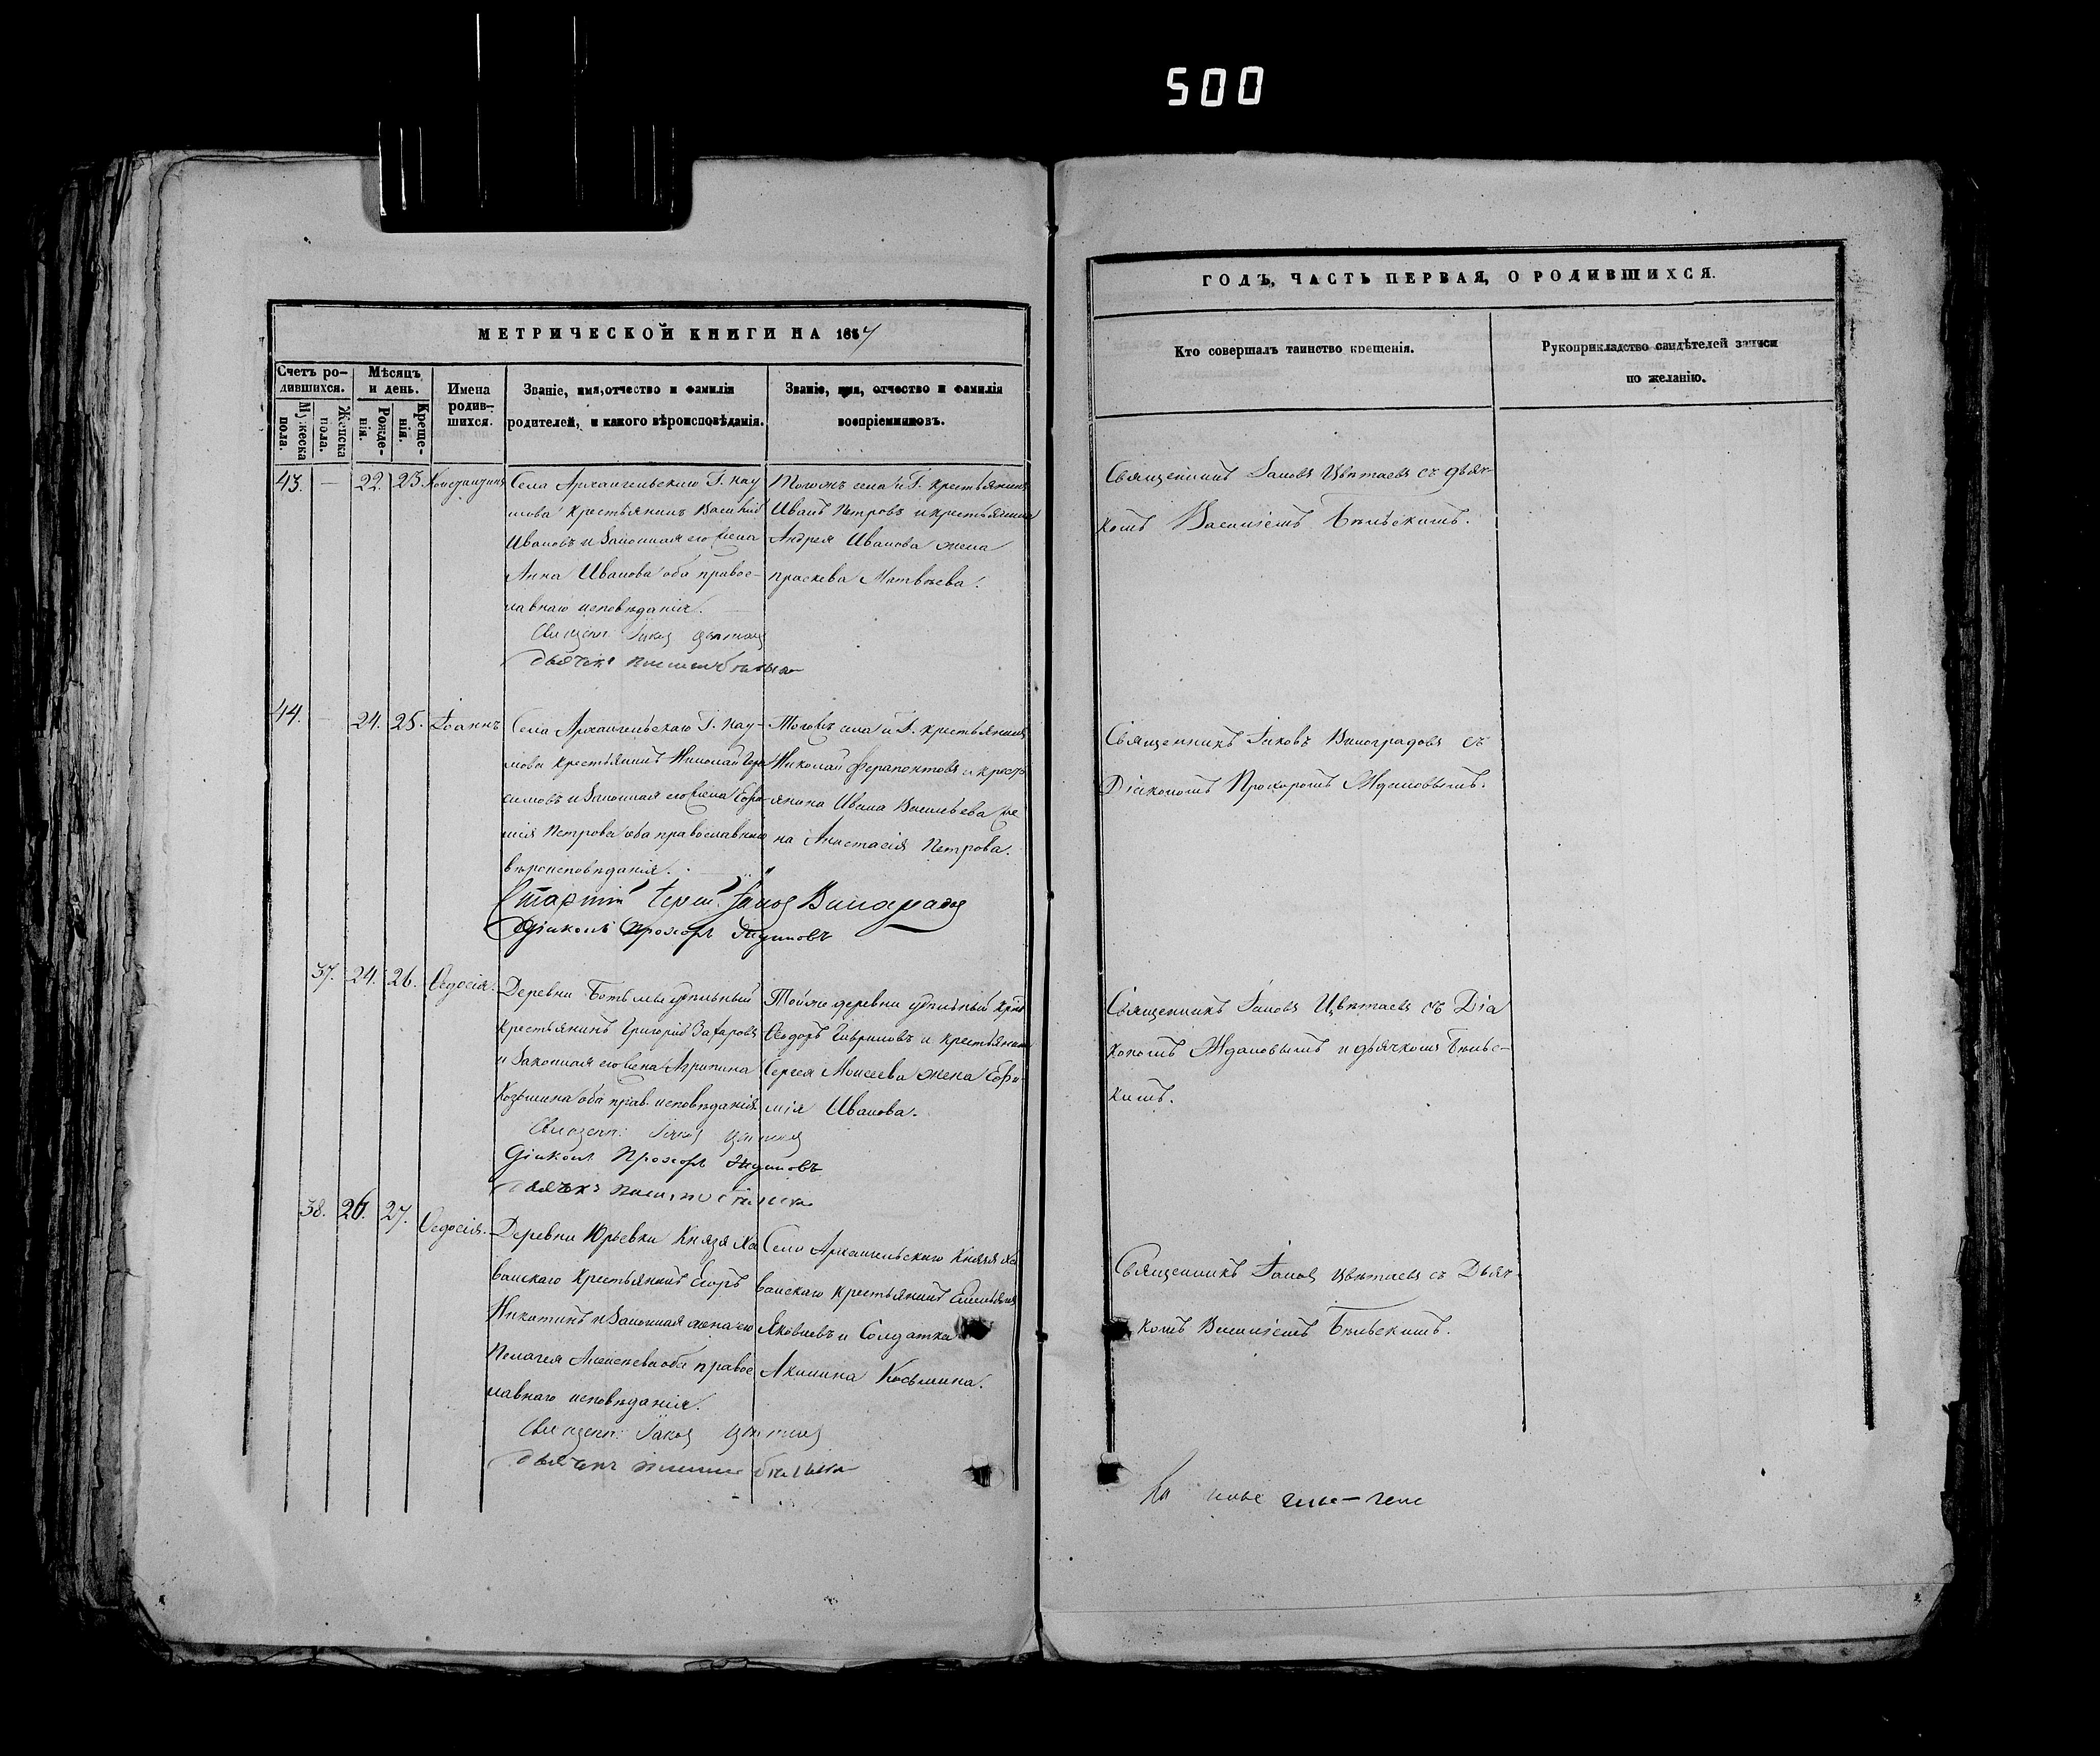 500
МЕТРИЧЕСКОЙ КНИГИ НА 1857
Счетъ ро-
дившихся.
Мужеска
пола.
Женска
пола.
Мѣсяцъ
и день.
Рожде-
нія.
Креще-
нія.
Имена
родив-
шихся.
Званіе, имя, отчество и фамилія
родителей, и какого вѣроисповѣданія.
Званіе, имя, отчество и фамилія
воспріемниковъ.
43. — 22. 23. Константинъ
Села Архангельскаго Г. Нау
мова крестьянинъ Василій
Ивановъ и законная его жена
Анна Иванова оба правос-
лавнаго исповѣданія.
Тогожъ села и Г. крестьянинъ
Иванъ Петровъ и крестьянина
Андрея Иванова жена
Праскева Матвѣева.
44. — 24. 25. Іоаннъ
Села Архангельскаго Г. Нау-
мова крестьянинъ Николай Гера
симовъ и законная его жена Евфи-
мія Петрова оба православнаго
вѣроисповѣданія.
Тогожъ села и Г. крестьянинъ
Николай Ферапонтовъ и крестъ
янина Ивана Васильева же
на Анастасія Петрова.
Діаконъ Прохоръ Ждановъ
37. 24. 26. Ѳедосія.
Деревни удѣльный
крестьянинъ Григорій Захаровъ
и законная его жена Агрипина
Козьмина оба прав. исповѣданія.
Тойже деревни удѣльный крес
Ѳедоръ Гавриловъ и крестьянина
Сергея Моисеева жена Евфи-
мія Иванова.
Діаконъ Прохоръ Ждановъ
38. 26. 27. Ѳедосія.
Деревни Юрьевки Князя Хо
ванскаго крестьянинъ Егоръ
Никитинъ и законная жена его
Пелагея оба правос
лавнаго исповѣданія.
Села Архангельскаго Князя Хо
ванскаго крестьянинъ Емельянъ
Яковлевъ и Солдатка
Акилина Косьмина.
ГОДЪ, ЧАСТЬ ПЕРВАЯ, О РОДИВШИХСЯ.
Кто совершалъ таинство крещенія.
Рукоприкладство свидѣтелей записи
по желанію.
Священникъ Іаковъ Цвѣтаевъ съ дьяч-
комъ Василіемъ Бѣльскимъ.
Священникъ Іаковъ Виноградовъ съ
Діакономъ Прохоромъ Ждановымъ.
Священникъ Іаковъ Цвѣтаевъ съ Діа
кономъ Ждановымъ и дьячкомъ Бѣльс-
кимъ.
Священникъ Іаковъ Цвѣтаевъ съ Дьяч-
комъ Василіемъ Бѣльскимъ.